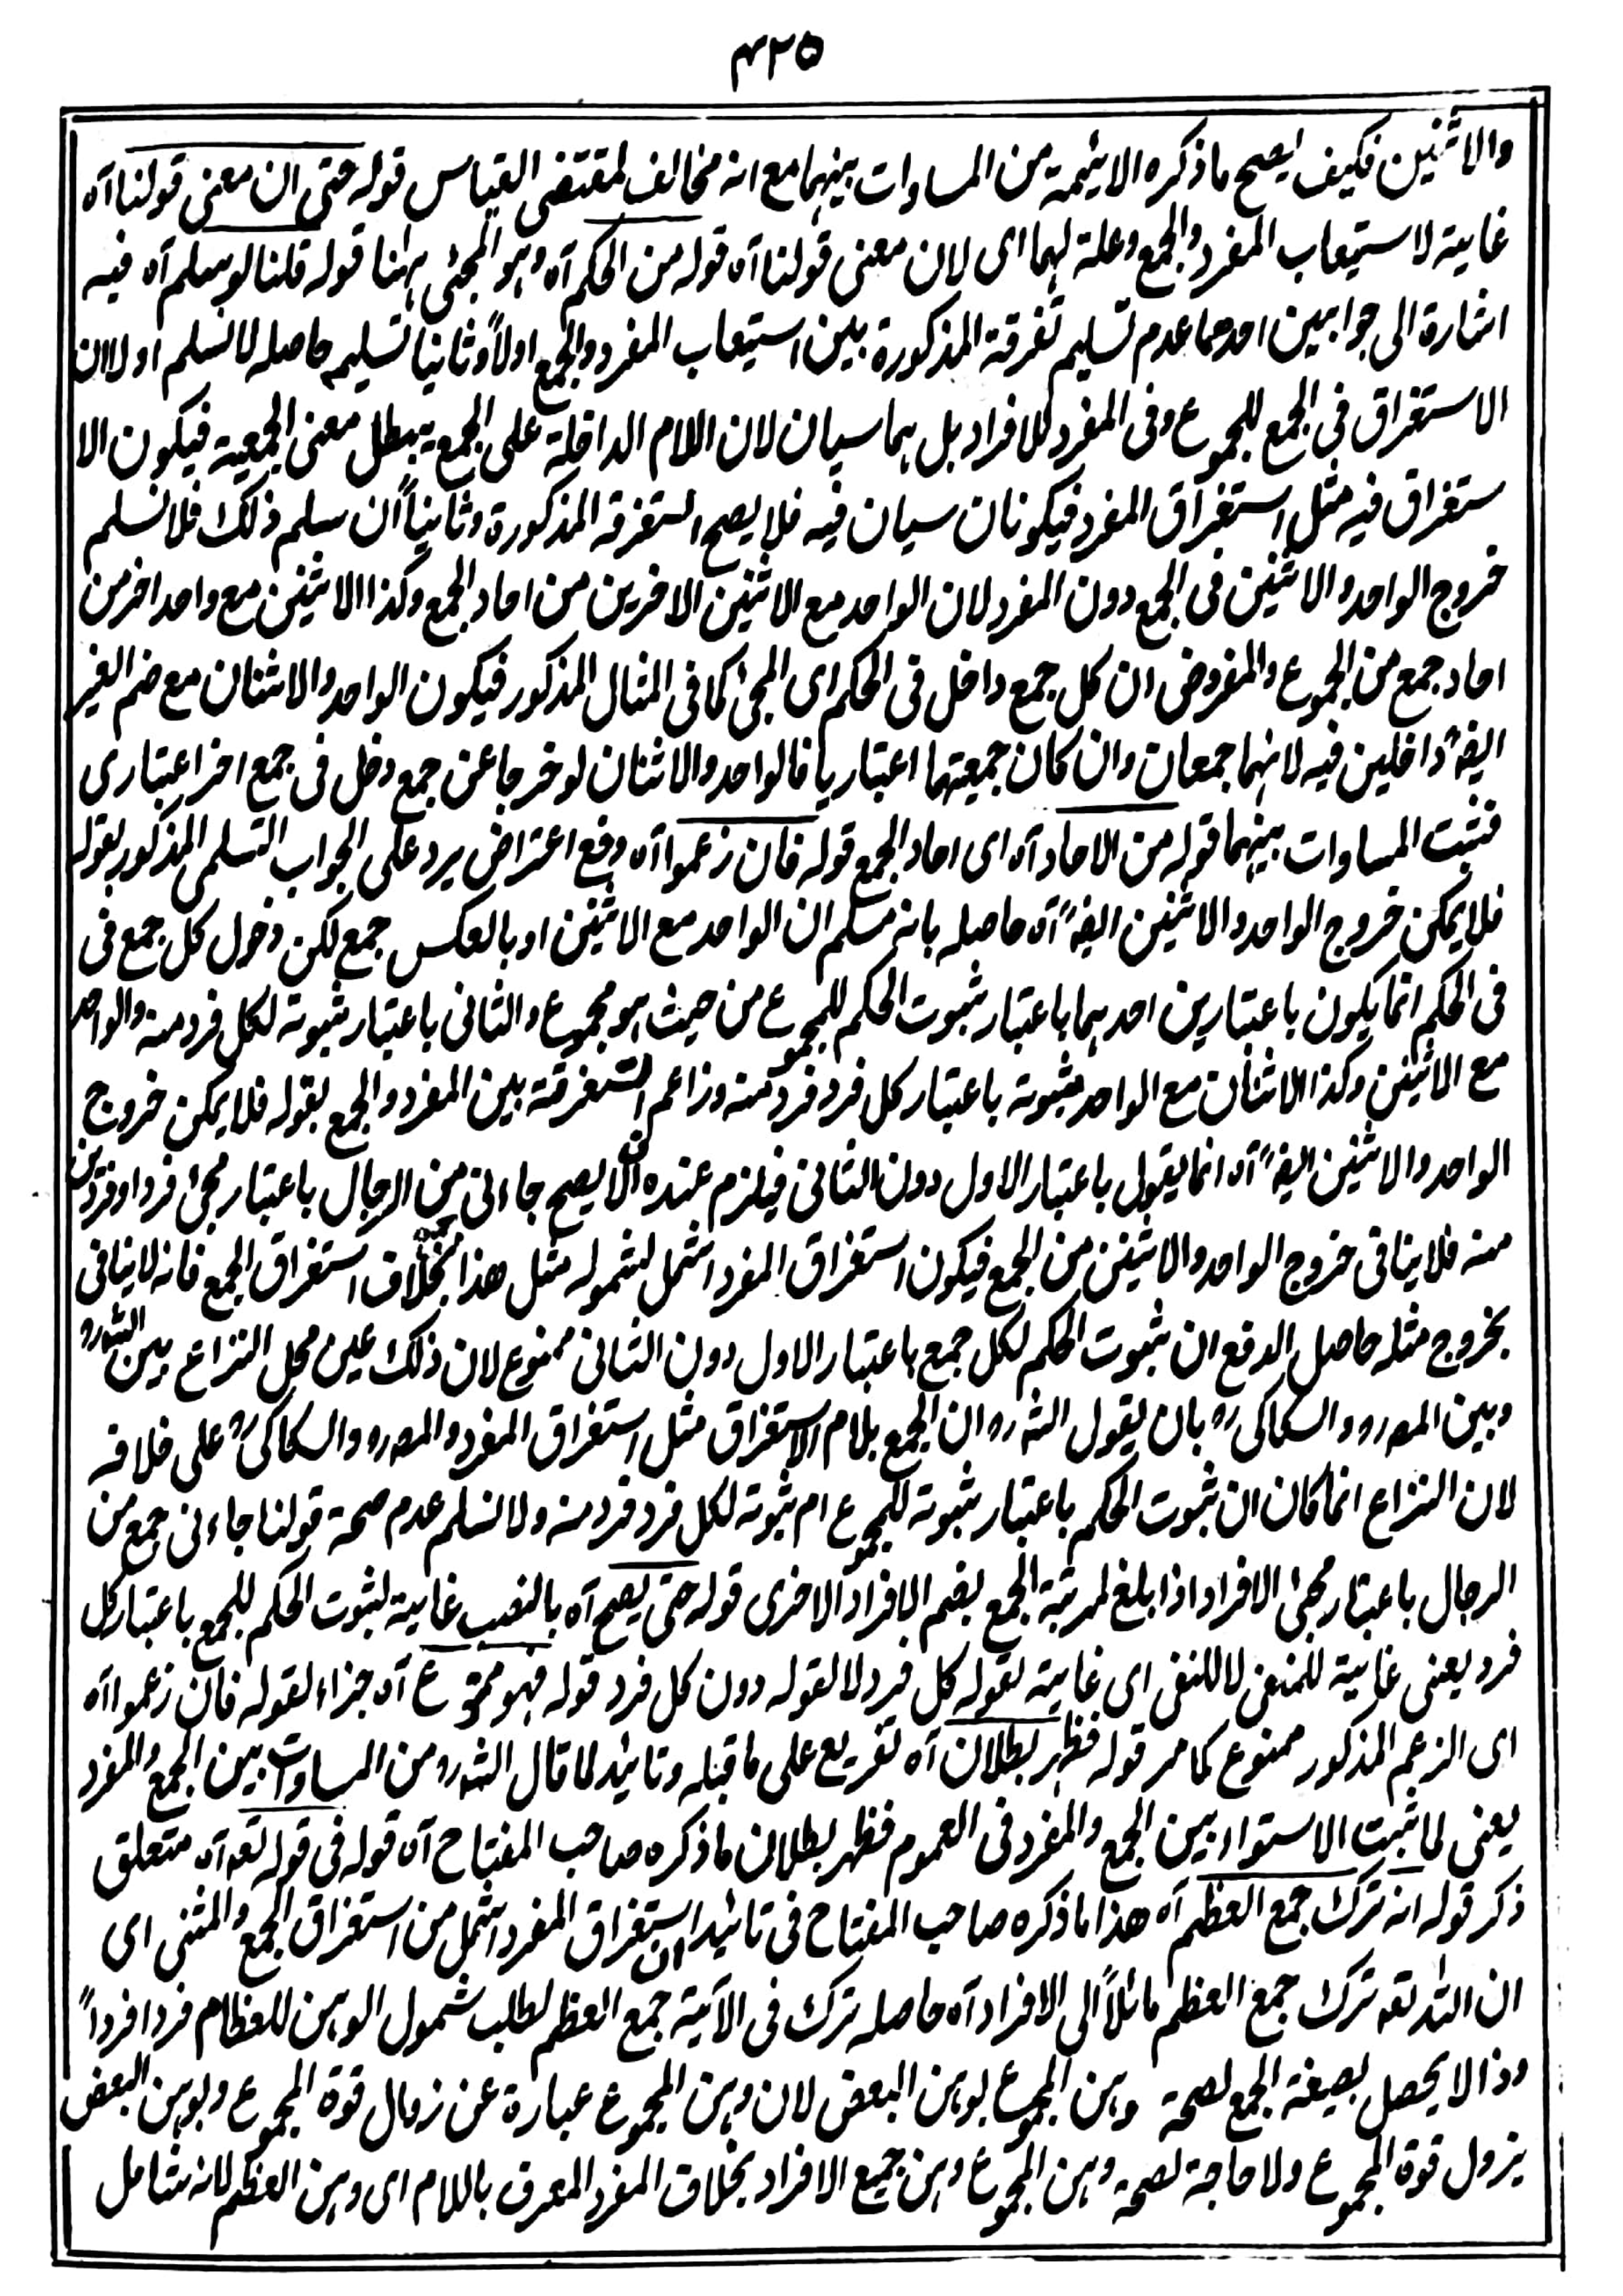 ۴۲۵
والاثنين فكيف يصح ماذكره الايئمة من المساوات بينهما مع انه مخالف لمقتضى القياس قوله حتى ان معنى قولنا آه
غاية لاستيعاب المفرد والجمع وعلة لهما اى لان معنى قولنا آه قوله من الحكم آه وهو المجئى ههنا قوله قلنا لوسلم آه فيه
اشارة الى جوابين احدهما عدم تسليم تفرقة المذكورة بين استيعاب المفرد والجمع اولاً وثانيا تسليمه حاصله لانسلم اولا ان
الاستغراق فى الجمع للمجموع وفى المفرد للافراد بل هما سيان لان اللام الداخلة على الجمع يبطل معنى الجمعية فيكون الا
ستغراق فيه مثل استغراق المفرد فيكونان سيان فيه فلا يصح التفرقة المذكورة وثانياً ان سلم ذلك فلانسلم
خروج الواحد والاثنين فى الجمع دون المفرد لان الواحد مع الاثنين الاخرين من احاد الجمع وكذا الاثنين مع واحد اخر من
احاد جمع من المجموع والمفروض ان كل جمع داخل فى الحكم اى المجئ كما فى المثال المذكور فيكون الواحد والاثنان مع ضم الغير
ايضً داخلين فيه لانهما جمعان وان كان جمعيتهما اعتباريا فالواحد والاثنان لوخرجا عن جمع دخل فى جمع اخر اعتبارى
فثبت المساوات بينهما قوله من الاحاد آه اى احاد الجمع قوله فان زعموا آه دفع اعتراض يرد على الجواب التسلمى المذكور بقوله
فلا يمكن خروج الواحد والاثنين ايضً آه حاصله بانه مسلم ان الواحد مع الاثنين او بالعكس جمع لكن دخول كل جمع فى
فى الحكم انما يكون باعتبارين احدهما باعتبار ثبوت الحكم للمجموع من حيث هو مجموع والثانى باعتبار ثبوته لكل فرد منه والواحد
مع الاثنين وكذا الاثنان مع الواحد ثبوته باعتبار كل فرد فرد منه وزاعم التفرقة بين المفرد والجمع بقوله فلا يمكن خروج
الواحد والاثنين ايضً آه انما يقول باعتبار الاول دون الثانى فيلزم عنده ان لا يصح جاءنى من الرجال باعتبار مجئ فرد او فردين
منه فلا ينافى خروج الواحد والاثنين من الجمع فيكون استغراق المفرد اشمل لشموله مثل هذا بخلاف استغراق الجمع فانه لاينافى
بخروج مثله حاصل الدفع ان ثبوت الحكم لكل جمع باعتبار الاول دون الثانى ممنوع لان ذلك عين محل النزاع بين الشه ره
وبين المصه ره والسكاكى ره بان يقول الشه ره ان الجمع بلام الاستغراق مثل استغراق المفرد والمصه ره والسكاكى ره على خلافه
لان النزاع انما كان ان ثبوت الحكم باعتبار ثبوته للمجموع ام ثبوته لكل فرد فرد منه ولانسلم عدم صحة قولنا جاءنى جمع من
الرجال باعتبار مجئ الافراد اذا بلغ لمرتبة الجمع بضم الافراد الاخرى قوله حتى يصح آه بالنصب غاية لثبوت الحكم للجمع باعتبار كل
فرد يعنى غاية للمنفى لا للنفى اى غاية لقوله كل فرد لا لقوله دون كل فرد قوله فهو ممنوع آه جزاء لقوله فان زعموا آه
اى الزعم المذكور ممنوع كما مر قوله فظهر بطلان آه تفريع على ما قبله وتائيد لما قال الشه ره من المساوات بين الجمع والمفرد
يعنى لما ثبت الاستواء بين الجمع والمفرد فى العموم فظهر بطلان ماذكره صاحب المفتاح آه قوله فى قوله تعه آه متعلق
ذكر قوله انه ترك جمع العظم آه هذا ماذكره صاحب المفتاح فى تائيد ان استغراق المفرد اشمل من استغراق الجمع والمثنى اى
ان الله تعه ترك جمع العظم مائلاً الى الافراد آه حاصله ترك فى الآية جمع العظم لطلب شمول الوهن للعظام فردا فرداً
وذا لا يحصل بصيغة الجمع لصحة وهن المجموع بوهن البعض لان وهن المجموع عبارة عن زوال قوة المجموع وبوهن البعض
يزول قوة المجموع ولاحاجة لصحة وهن المجموع وهن جميع الافراد بخلاف المفرد المعرف باللام اى وهن العظم لانه شامل